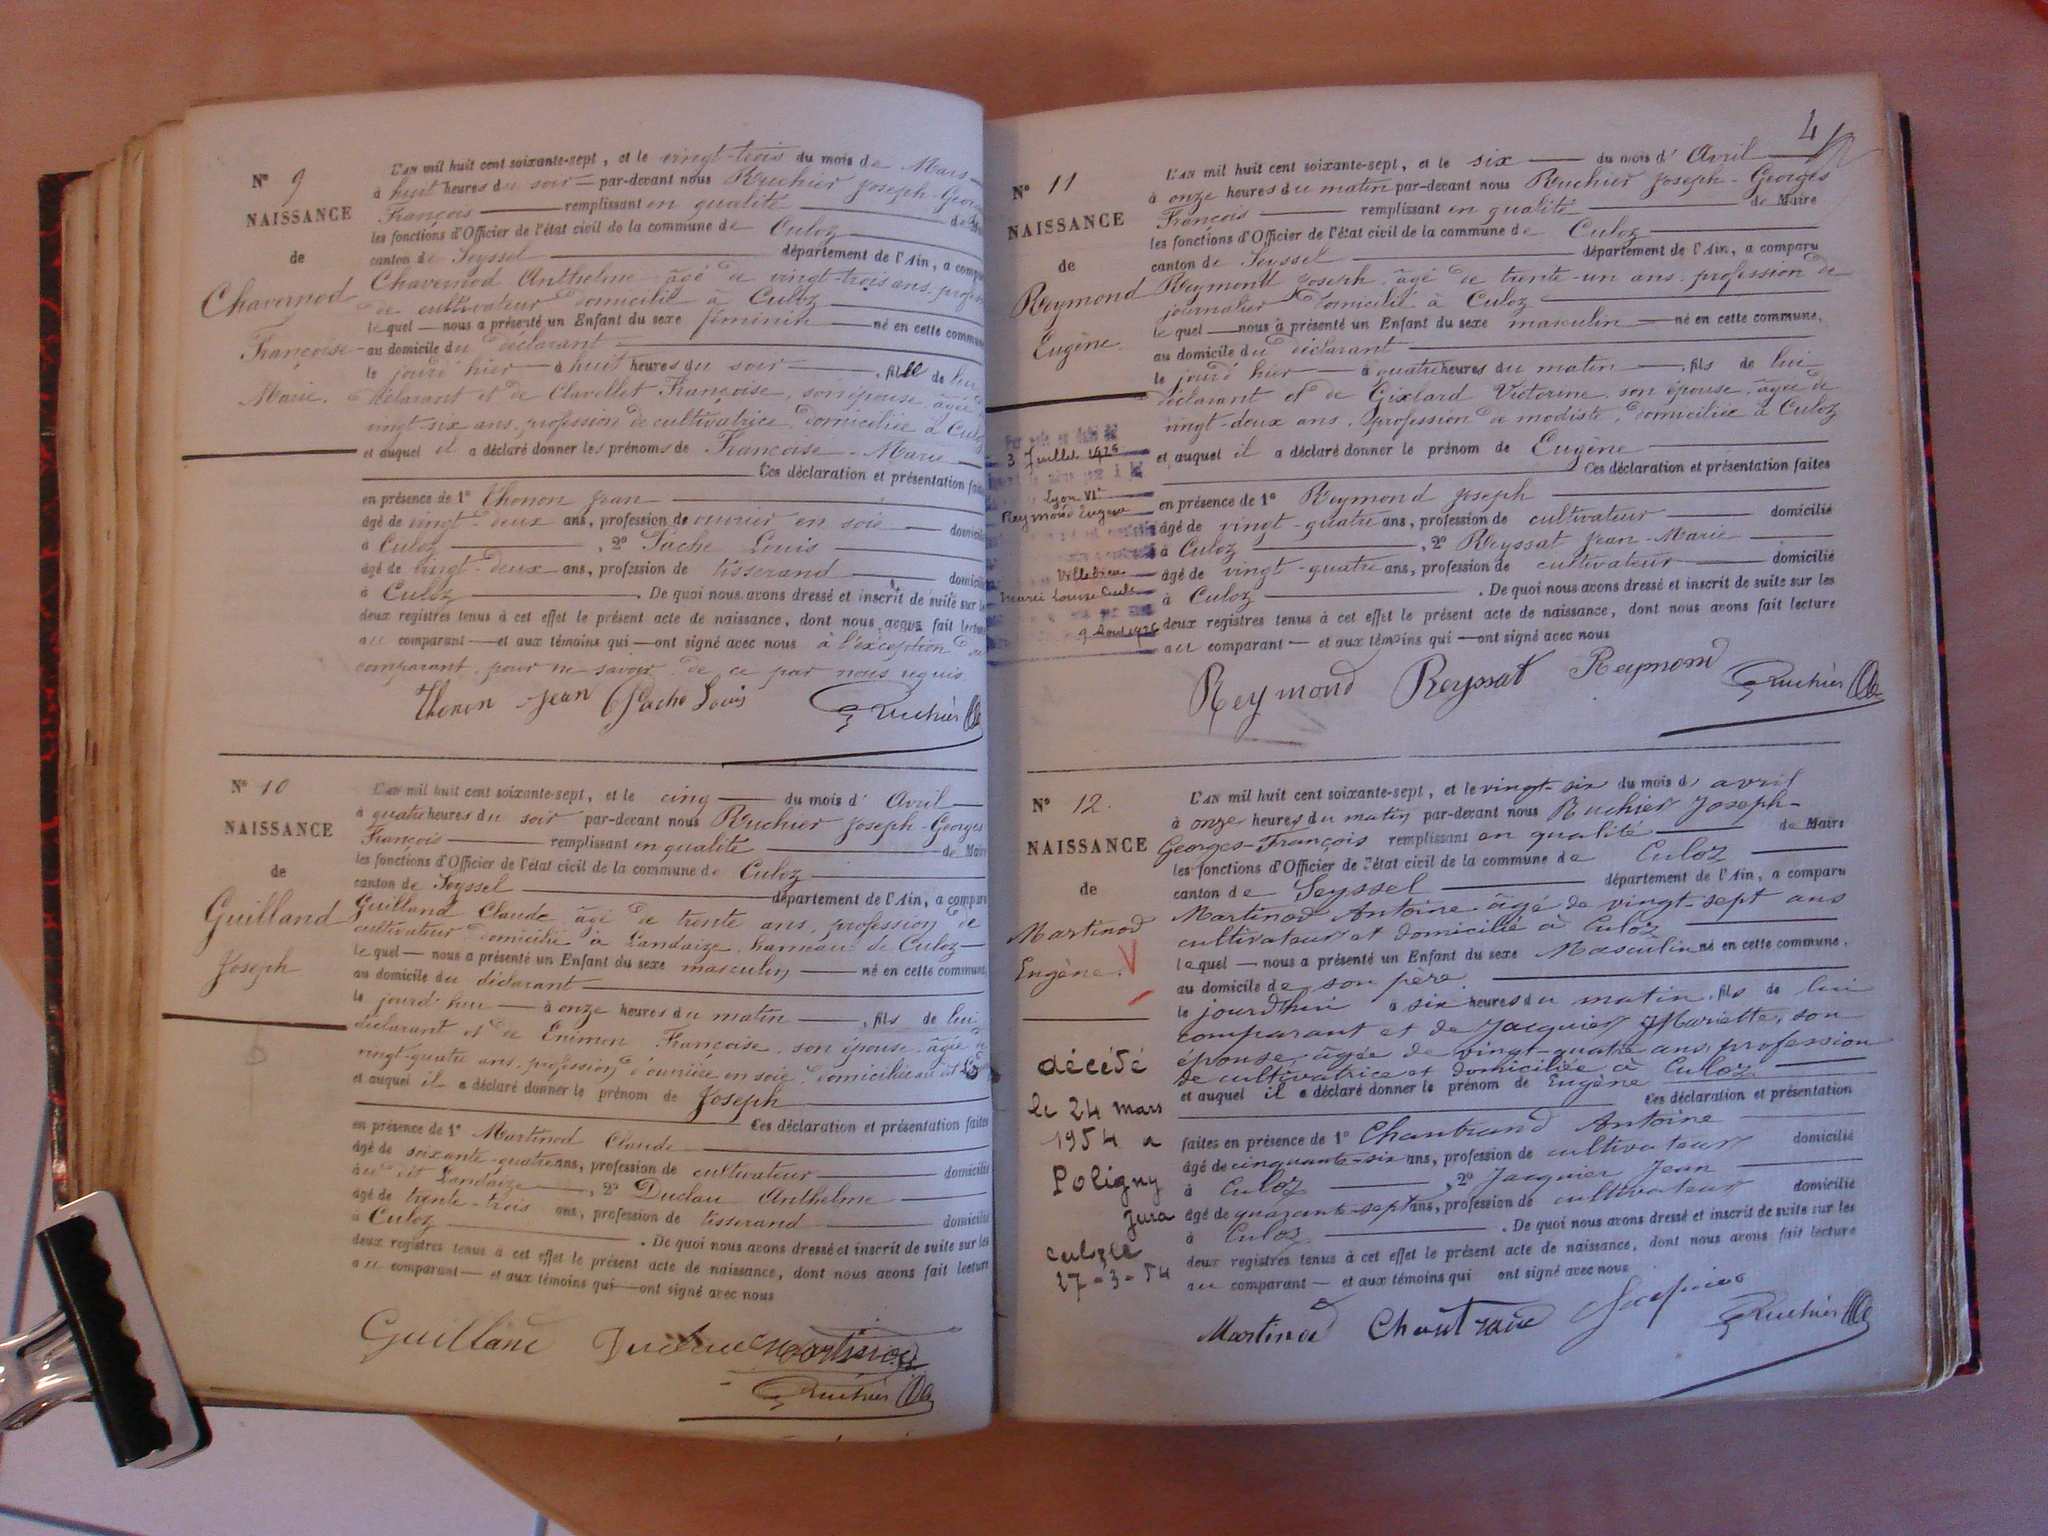 N° 9
NAISSANCE
de
Chavernod
Françoise
Marie.
L'AN mil huit cent soixante-sept, et le vingt-trois du mois de Mars
à huit heures du soir par-devant nous Ruchier Joseph-Georges
François remplissant en qualité de Maire
les fonctions d'Officier de l'état civil de la commune de Culoz
canton de Seyssel département de l'Ain, a comparu
Chavernod Anthelme âgé de vingt-trois ans, profession
de cultivateur domicilié à Culoz
lequel nous a présenté un Enfant du sexe féminin né en cette commune
au domicile du déclarant
le jourd'hier à huit heures du soir, fille de lui
déclarant et de Clavellet Françoise, son épouse, âgée de
vingt-six ans, profession de cultivatrice, domiciliée à Culoz
et auquel il a déclaré donner les prénoms de Françoise-Marie
Ces déclaration et présentation faites
en présence de 1° Thonon Jean
âgé de vingt-deux ans, profession de ouvrier en soie domicilié
à Culoz, 2° Pache Louis
âgé de vingt-deux ans, profession de tisserand domicilié
à Culoz. De quoi nous avons dressé et inscrit de suite sur les
deux registres tenus à cet effet le présent acte de naissance, dont nous avons fait lecture
au comparant et aux témoins qui ont signé avec nous à l'exception du
comparant pour ne savoir de ce par nous requis.
Thonon Jean Pache Louis Ruchier
N° 10
NAISSANCE
de
Guilland
Joseph
L'AN mil huit cent soixante-sept, et le cinq du mois d'Avril
à quatre heures du soir par-devant nous Ruchier Joseph-Georges
François remplissant en qualité de Maire
les fonctions d'Officier de l'état civil de la commune de Culoz
canton de Seyssel département de l'Ain, a comparu
Guilland Claude âgé de trente ans, profession de
cultivateur domicilié à Landaize, hameau de Culoz
lequel nous a présenté un Enfant du sexe masculin né en cette commune,
au domicile du déclarant
le jourd'hui à onze heures du matin, fils de lui
déclarant et de Françoise, son épouse, âgée de
vingt-quatre ans, profession d'ouvrière en soie, domiciliée au dit
et auquel il a déclaré donner le prénom de Joseph
Ces déclaration et présentation faites
en présence de 1° Martinod Claude
âgé de soixante-quatre ans, profession de cultivateur domicilié
au dit Landaize, 2° Duclau Anthelme
âgé de trente-trois ans, profession de tisserand domicilié
à Culoz. De quoi nous avons dressé et inscrit de suite sur les
deux registres tenus à cet effet le présent acte de naissance, dont nous avons fait lecture
au comparant et aux témoins qui ont signé avec nous
Guilland Duclau Martinod
Ruchier
4
N° 11
NAISSANCE
de
Reymond
Eugène.
3 Juillet 1926
Lyon VI°
Reymond Eugène
Villebieu
9 Aout 1926
L'AN mil huit cent soixante-sept, et le six du mois d'Avril
à onze heures du matin par-devant nous Ruchier Joseph-Georges
François remplissant en qualité de Maire
les fonctions d'Officier de l'état civil de la commune de Culoz
canton de Seyssel département de l'Ain, a comparu
Reymond Joseph, âgé de trente-un ans, profession de
journalier domicilié à Culoz
lequel nous a présenté un Enfant du sexe masculin né en cette commune,
au domicile du déclarant
le jourd'hier à quatre heures du matin, fils de lui
déclarant et de Gixlard Victorine son épouse, âgée de
vingt-deux ans, profession de modiste, domiciliée à Culoz
et auquel il a déclaré donner le prénom de Eugène
Ces déclaration et présentation faites
en présence de 1° Reymond Joseph
âgé de vingt-quatre ans, profession de cultivateur domicilié
à Culoz, 2° Reyssat Jean-Marie
âgé de vingt-quatre ans, profession de cultivateur domicilié
à Culoz. De quoi nous avons dressé et inscrit de suite sur les
deux registres tenus à cet effet le présent acte de naissance, dont nous avons fait lecture
au comparant et aux témoins qui ont signé avec nous
Reymond Reyssat Reymond Ruchier
N° 12.
NAISSANCE
de
Martinod
Eugène.
décédé
le 24 mars
1954 a
Poligny
Jura
27-3-54
L'AN mil huit cent soixante-sept, et le vingt-six du mois d'avril
à onze heures du matin par-devant nous Ruchier Joseph-
Georges-François remplissant en qualité de Maire
les fonctions d'Officier de l'état civil de la commune de Culoz
canton de Seyssel département de l'Ain, a comparu
Martinod Antoine âgé de vingt-sept ans
cultivateur et domicilié à Culoz
lequel nous a présenté un Enfant du sexe Masculin né en cette commune.
au domicile de son père
le jourd'hui à six heures du matin, fils de lui
comparant et de Jacquier Mariette, son
épouse, âgée de vingt-quatre ans, profession
de cultivatrice et domiciliée à Culoz
et auquel il a déclaré donner le prénom de Eugène
Ces déclaration et présentation
faites en présence de 1° Chantrand Antoine
âgé de cinquante-six ans, profession de cultivateur domicilié
à Culoz, 2° Jacquier Jean
âgé de quarante-sept ans, profession de cultivateur domicilié
à Culoz. De quoi nous avons dressé et inscrit de suite sur les
deux registres tenus à cet effet le présent acte de naissance, dont nous avons fait lecture
au comparant et aux témoins qui ont signé avec nous
Martinod Chantrand Jacquier Ruchier